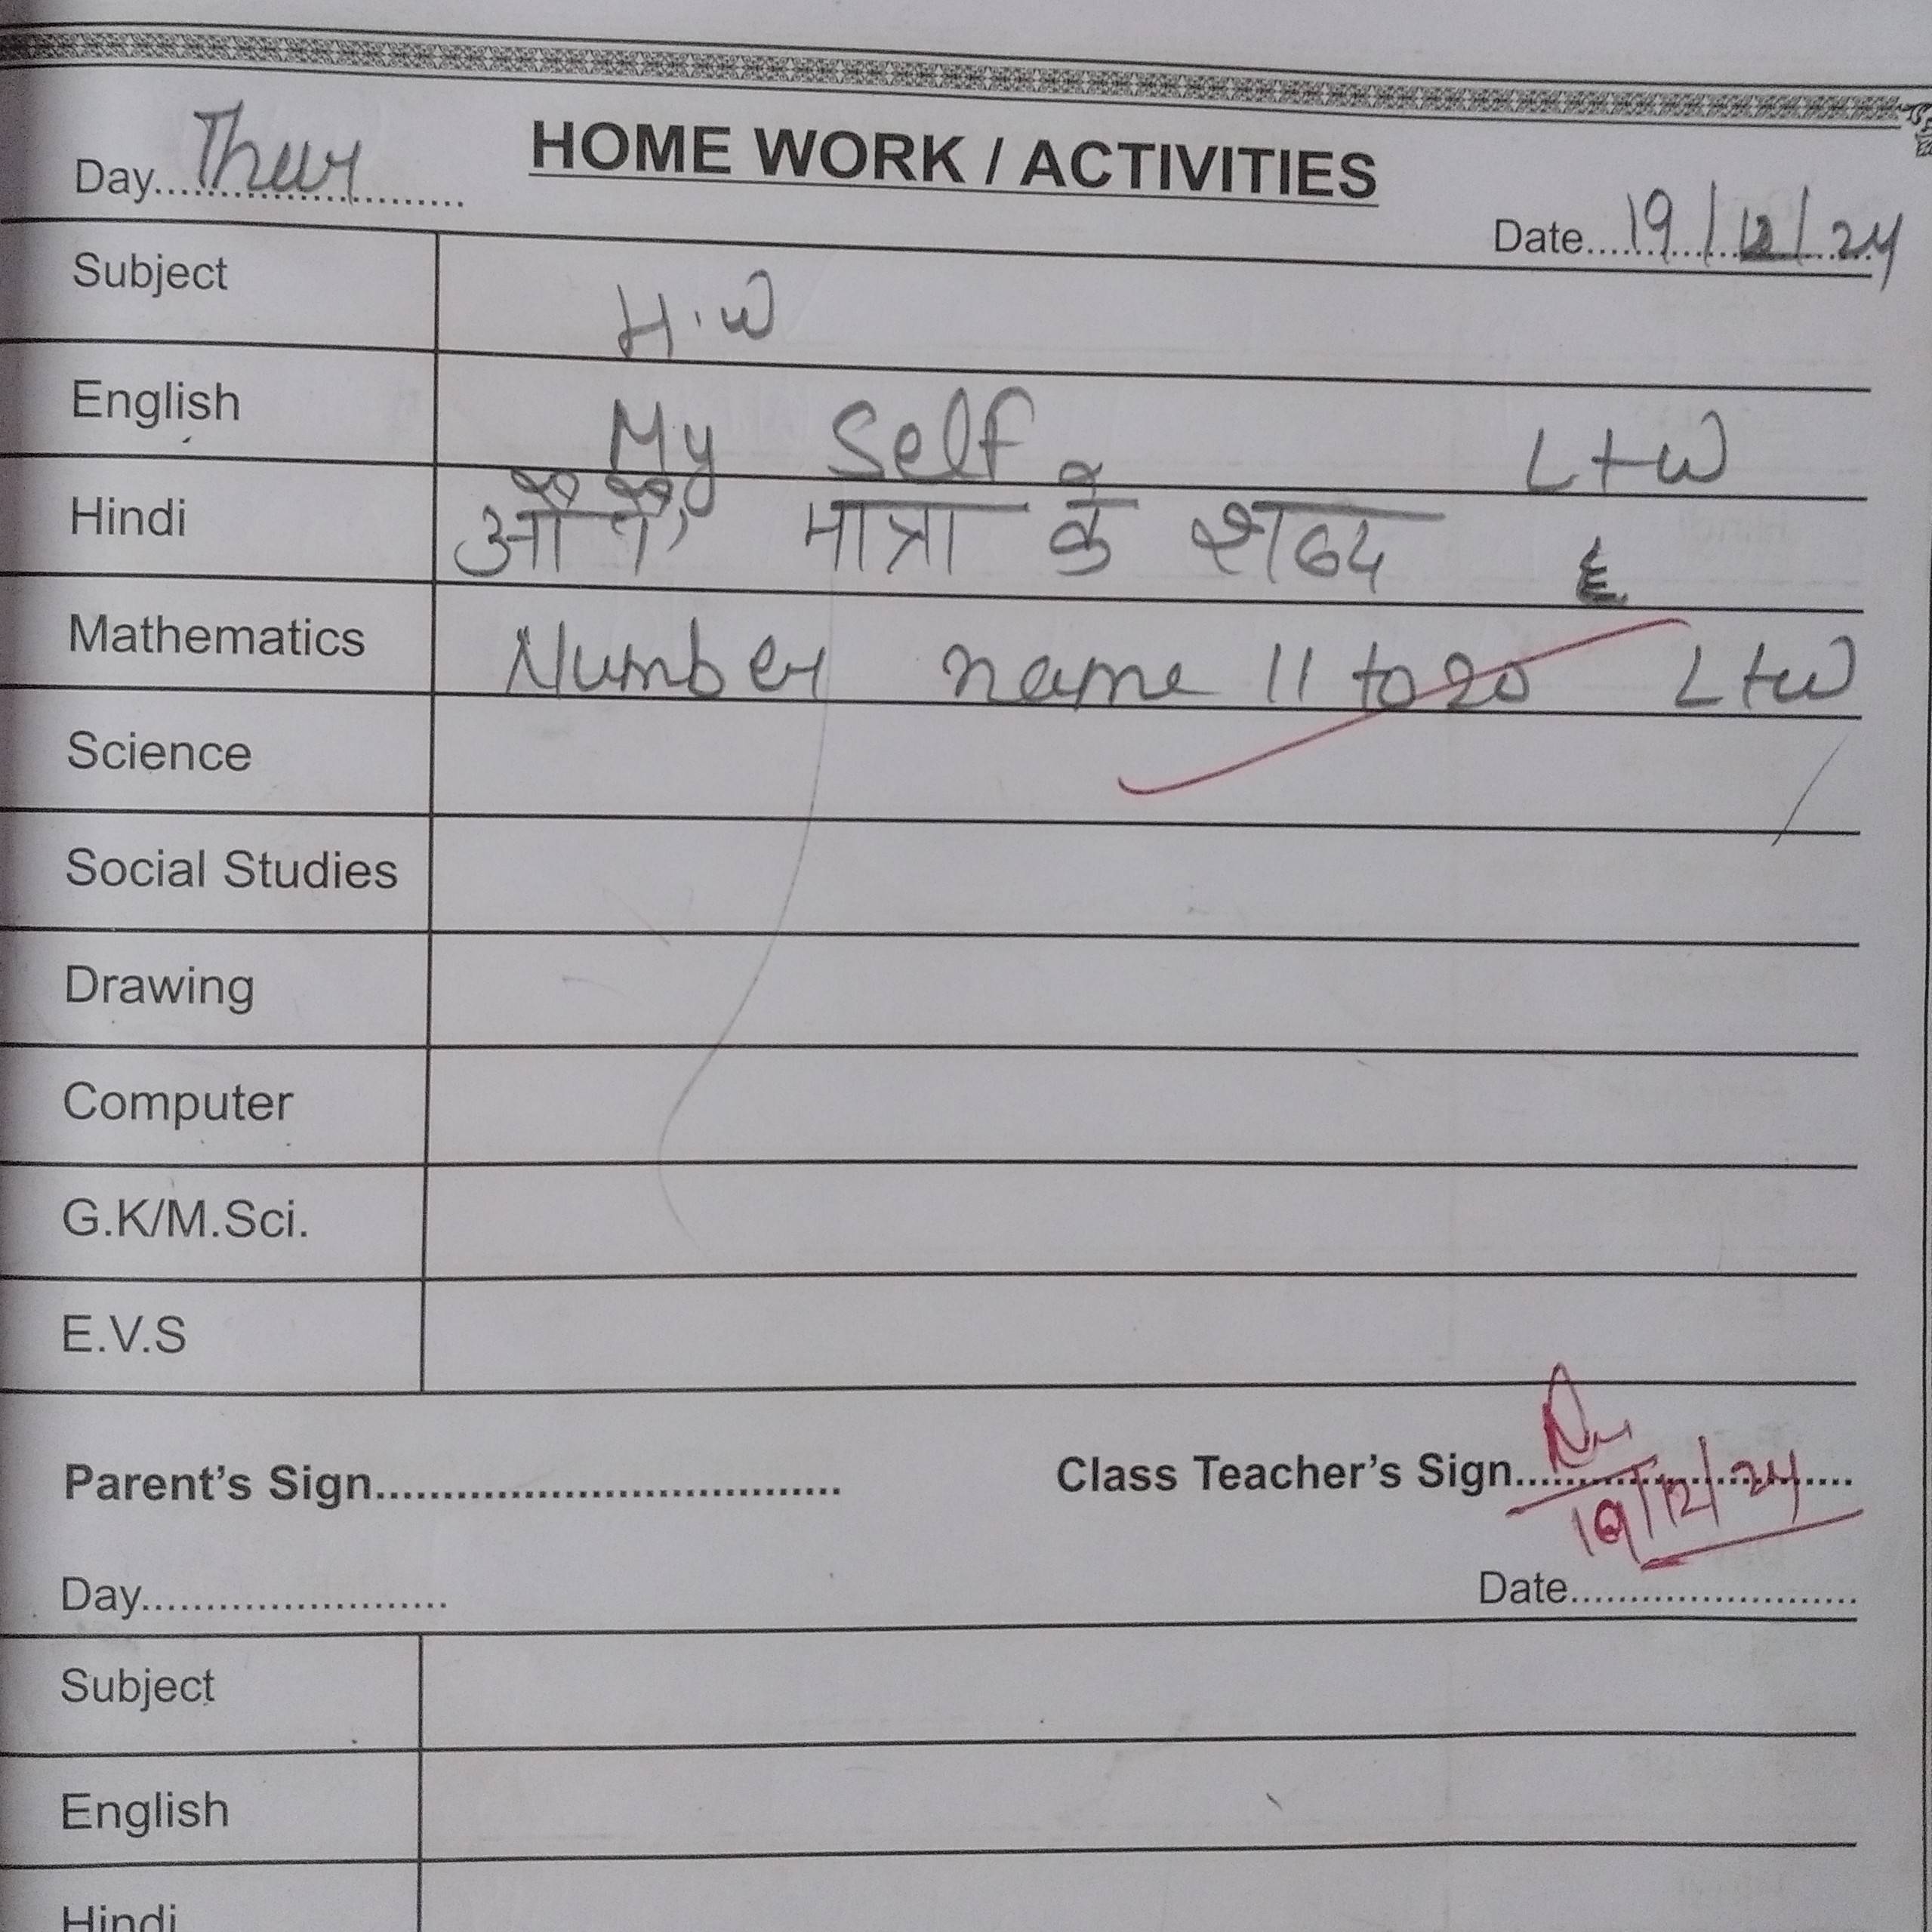 HOME WORK / ACTIVITIES
Day.......... Thur
Date.......... 19/12/24
Subject H.W
English My Self L+W
Hindi मात्रा के शब्द
Mathematics Number name 11 to 20 L+W
Science
Social Studies
Drawing
Computer
G.K/M.Sci.
E.V.S
Parent's Sign.......... Class Teacher's Sign..........
19/12/24
Day.......... Date..........
Subject
English
Hindi